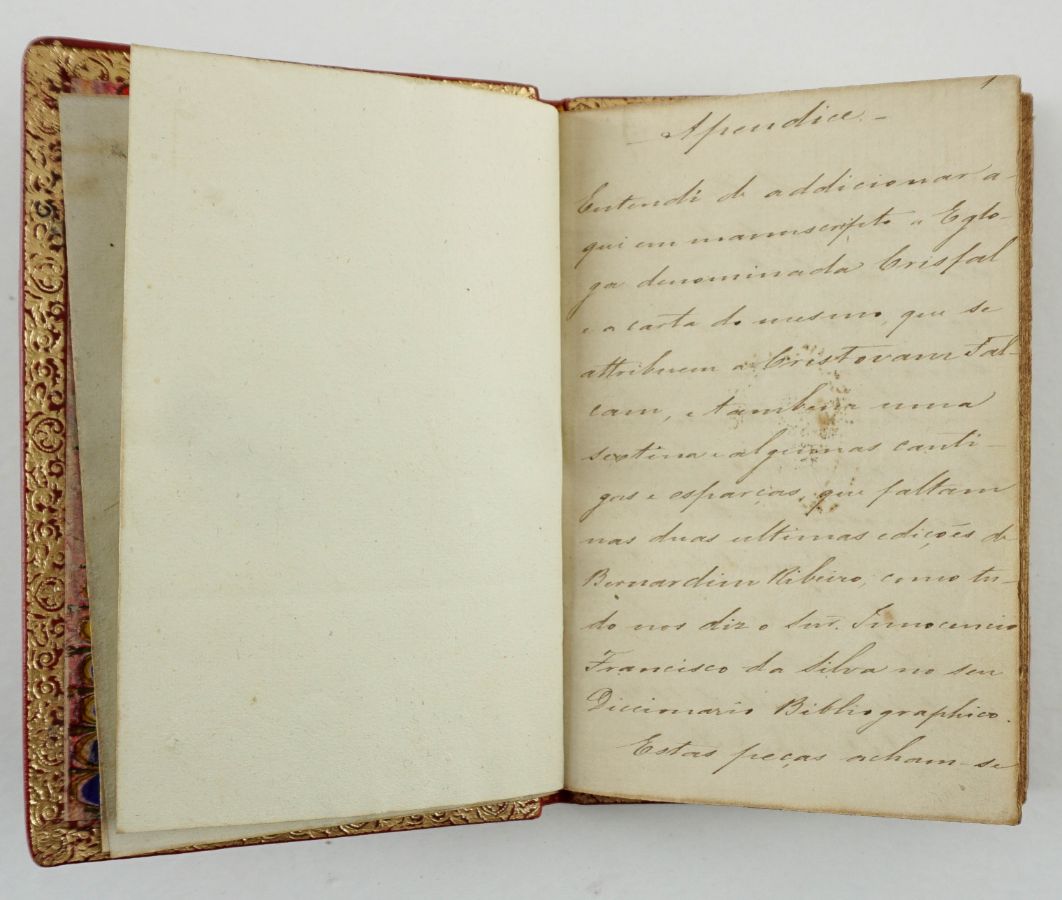 1
- Apendice. -
Entendi de addicionar a-
qui em manuscripto a Eglo-
ga denominada Crisfal
e a carta do mesmo, que se
attribuem a Cristovam Fal-
cam, e tambem uma
sextina e algumas canti-
gas e esparças, que faltam
nas duas ultimas edições de
Bernardim Ribeiro, como tu-
do nos diz o Snr. Innocencio
Francisco da Silva no seu
Diccionario Bibliographico.
Estas peças acham-se